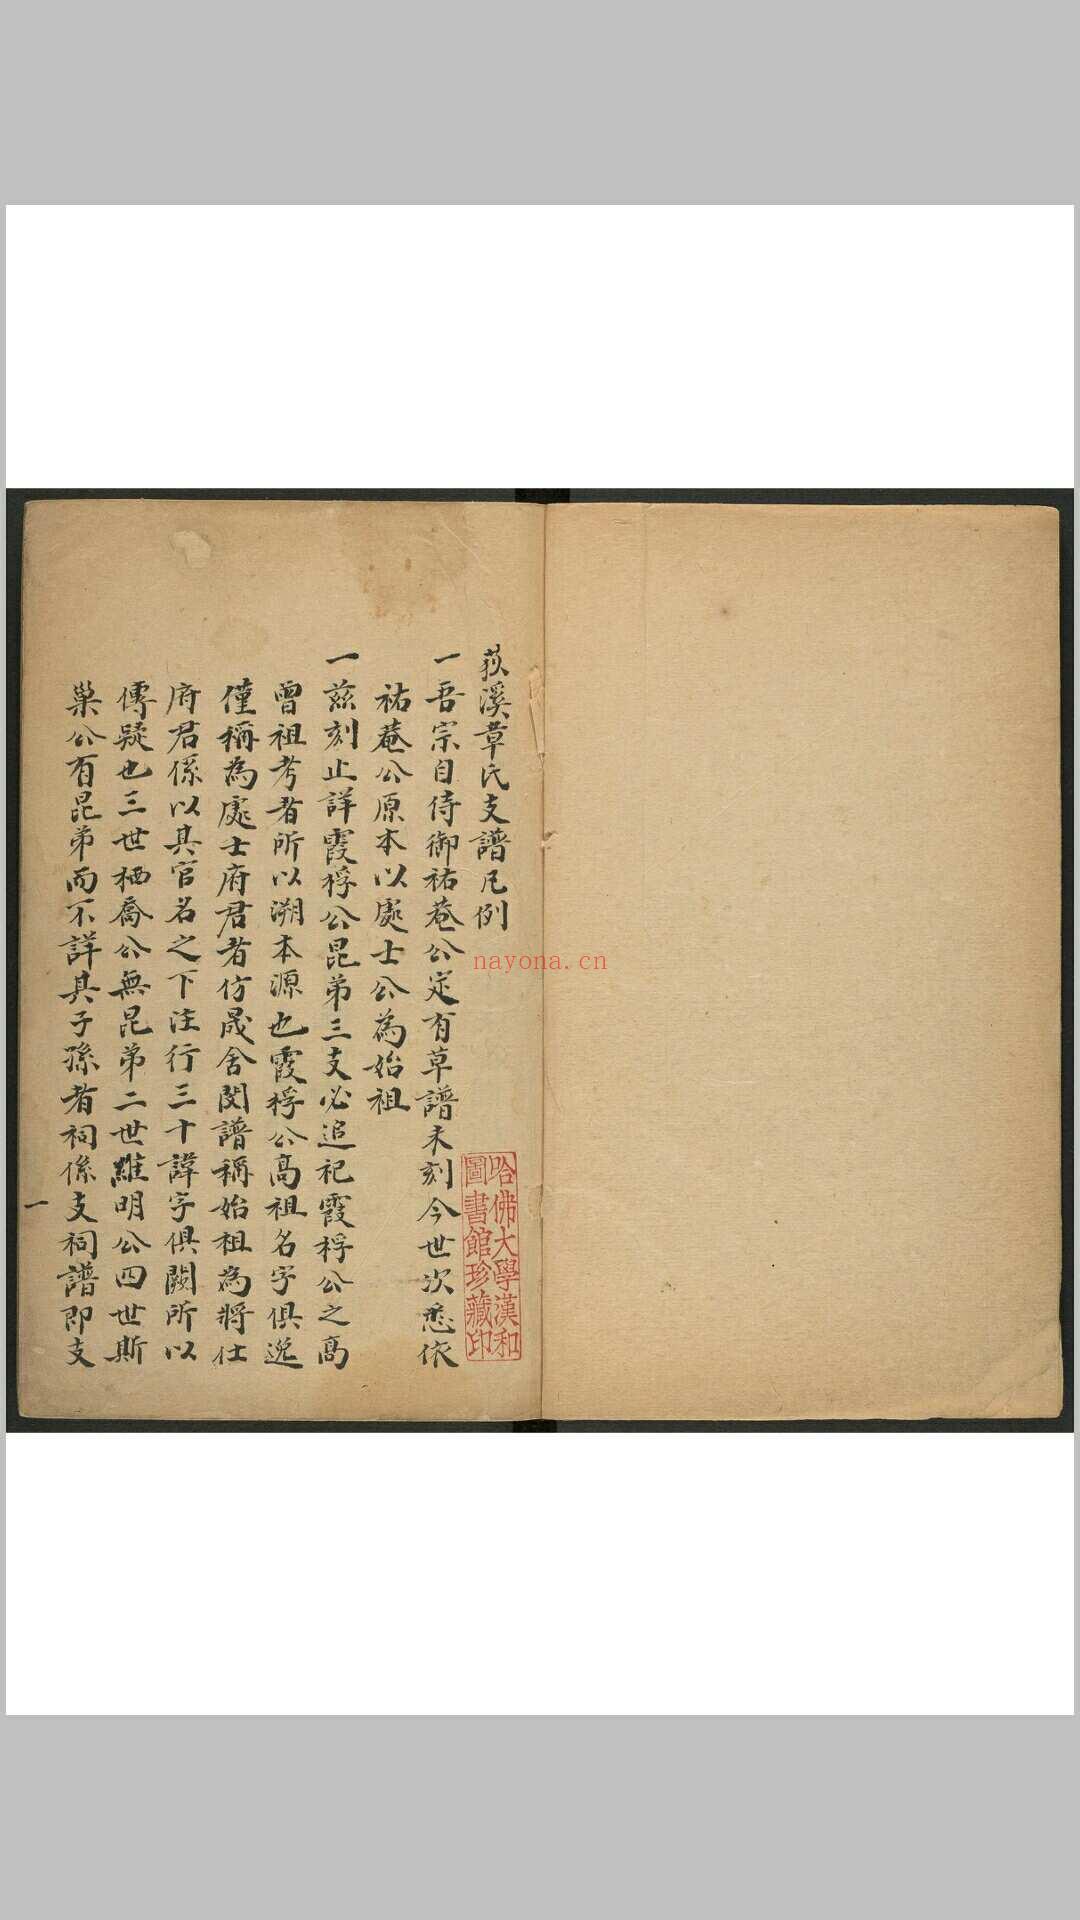 荻溪章氏支譜凡例
一吾宗自侍御祐菴公定有草譜未刻今世次悉依
祐菴公原本以處士公為始祖
一茲刻止詳霞稃公昆弟三支必追祀霞稃公之高
曾祖考者所以溯本源也霞稃公高祖名字俱逸
僅稱為處士府君者仿晟舍閔譜稱始祖為將仕
府君係以其官名之下注行三十諱字俱闕所以
傳疑也三世栖喬公無昆弟二世維明公四世斯
巢公有昆弟而不詳其子孫者祠係支祠譜即支
一
哈佛大學漢和
圖書館珍藏印
nayona.cn